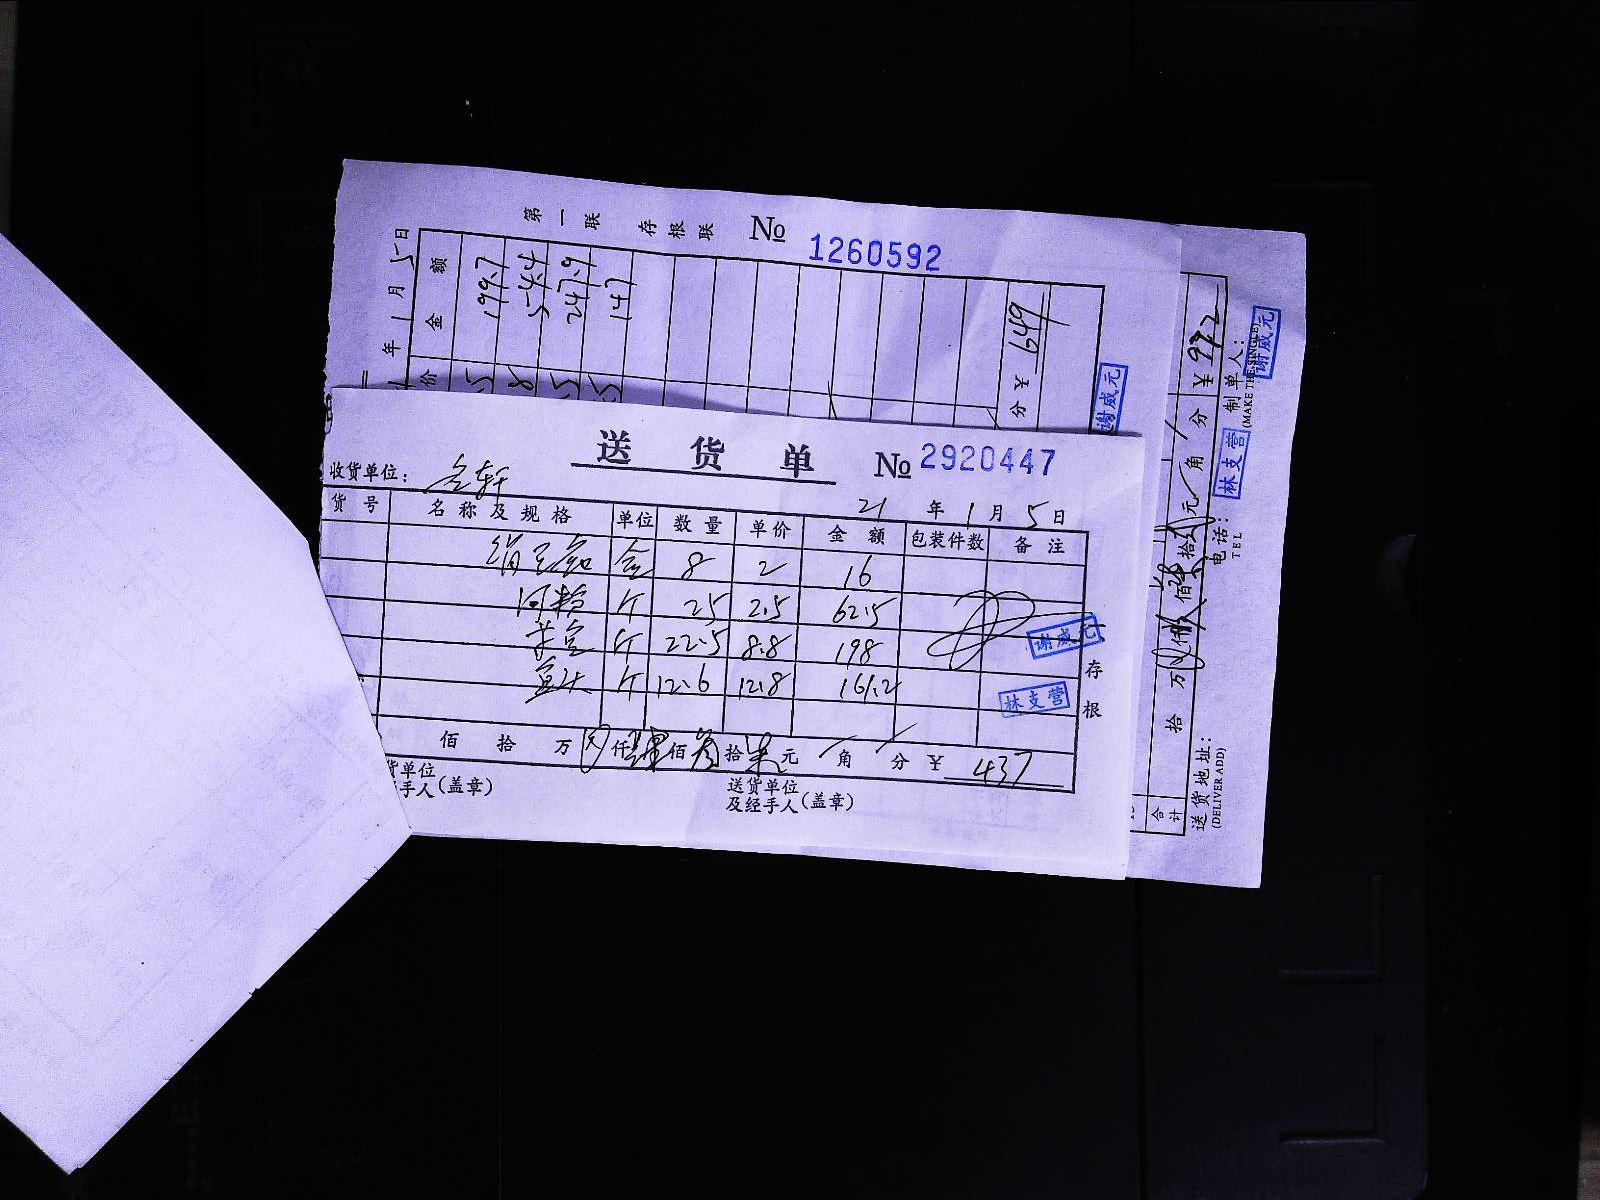 第一联 存根联 № 1260592
年 1月 5日
金额
199.7
54.4
247.9
147
价
分 ¥ 649
谢威元
送货单 № 2920447
收货单位:
21年 1月 5日
货号 名称及规格 单位 数量 单价 金额 包装件数 备注
8 2 16
河粉 斤 25 2.5 62.5
斤 22.5 8.8 198
斤 12.6 12.8 161.2
谢威元
林支营
存根
佰 拾 万 仟 肆 佰 叁 拾 柒 元 角 分 ¥ 437
货单位
手人(盖章)
送货单位
及经手人(盖章)
合计 拾 万 仟 佰 拾 元 角 分 ¥ 922
送货地址:
(DELIVER ADD)
电话:
TEL
林支营
制单人:
谢威元